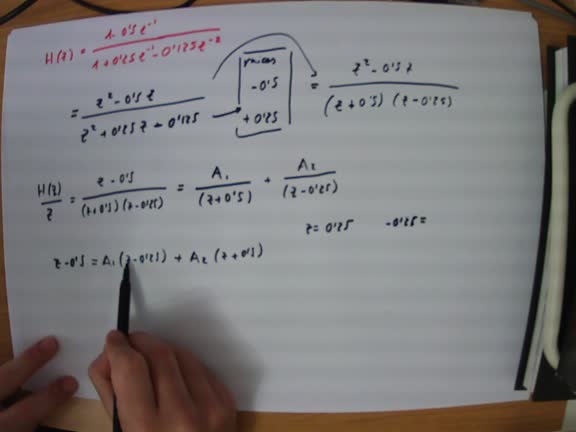 H(z) = \frac{1 - 0'5z^{-1}}{1 + 0'25z^{-1} - 0'125z^{-2}}
= \frac{z^2 - 0'5z}{z^2 + 0'25z - 0'125} → raíces -0'5 +0'25 = \frac{z^2 - 0'5z}{(z+0'5)(z-0'25)}
\frac{H(z)}{z} = \frac{z - 0'5}{(z+0'5)(z-0'25)} = \frac{A_1}{(z+0'5)} + \frac{A_2}{(z-0'25)}
z = 0'25 -0'25 =
z - 0'5 = A_1(z - 0'25) + A_2(z + 0'5)